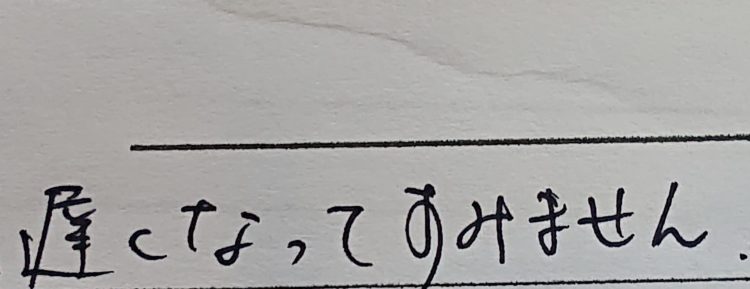 遅くなってすみません.